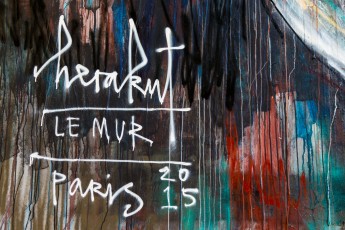 herakut
LE MUR
PARIS 20
15